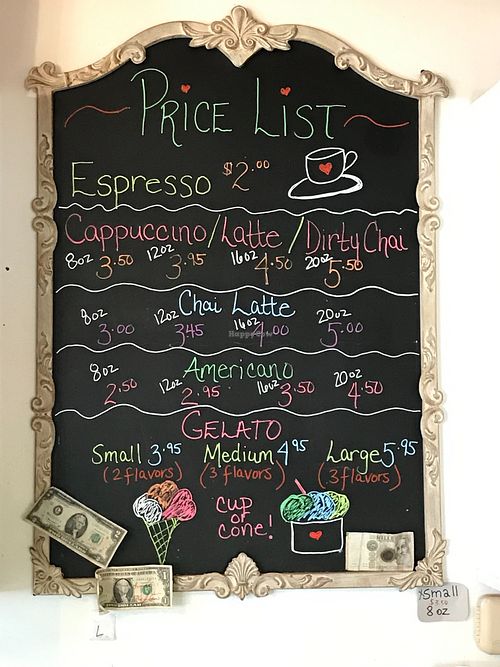 PRICE LIST
Espresso $2.00
Cappuccino/Latte/Dirty Chai
8oz 3.50 12oz 3.95 16oz 4.50 20oz 5.50
Chai Latte
8oz 3.00 12oz 3.45 16oz 4.00 20oz 5.00
Americano
8oz 2.50 12oz 2.95 16oz 3.50 20oz 4.50
GELATO
Small 3.95 Medium 4.95 Large 5.95
(2 flavors) (3 flavors) (3 flavors)
cup
or
cone!
xSmall
$3.50
8 oz
L
HappyCow